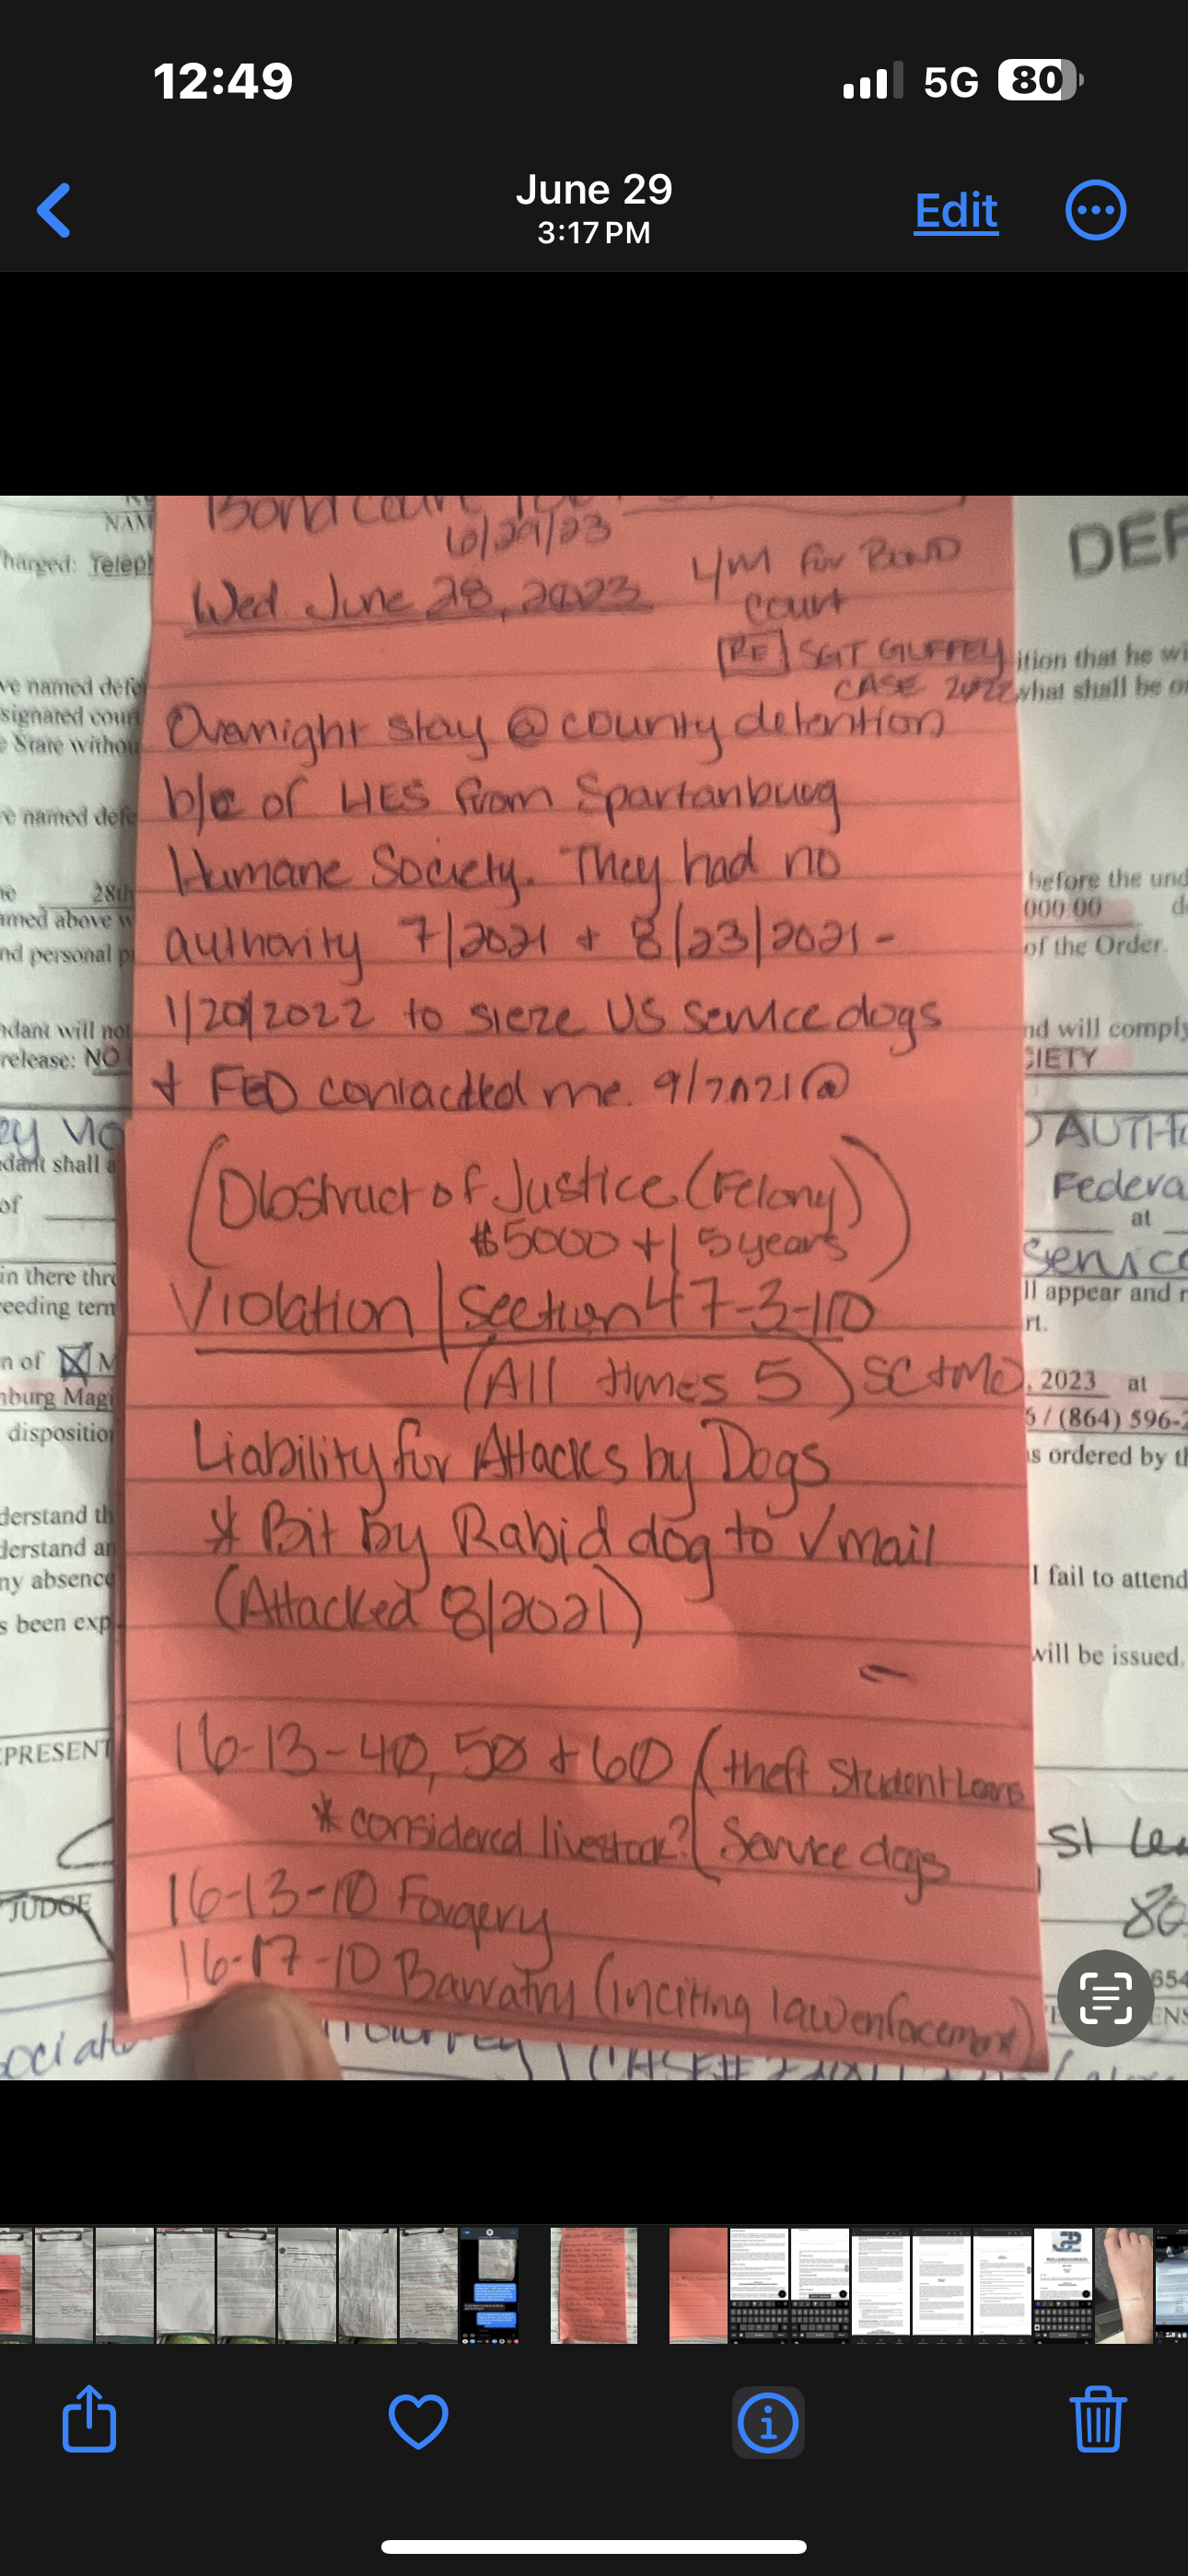 12:49
5G 80
June 29
3:17 PM
Edit
Bond Court
6/29/23
NAM
harged: Teleph
DEF
Wed. June 28, 2023
4m for Bond
Court
[RE] SGT GUFFEY
CASE 2022
ition that he wi
what shall be o
ve named defe
signated court
e State withou
Overnight stay @ county detention
b/c of LIES from Spartanburg
re named defe
Humane Society. They had no
before the und
28th
000.00 d
amed above w
authority 7/2021 + 8/23/2021 -
nd personal p
of the Order.
1/20/2022 to sieze US Service dogs
ndant will not
nd will comply
release: NO
CIETY
+ FED contacted me. 9/2021 @
AUTH
dant shall a
(Obstruct of Justice (Felony))
Federa
of
$5000 + | 5 years
at
Servic
in there thr
Violation | Section 47-3-110
ll appear and r
eeding term
rt.
n of M
(All times 5) SC + MO
, 2023 at
nburg Magi
6 / (864) 596-2
disposition
Liability for Attacks by Dogs
s ordered by th
derstand th
* Bit by Rabid dog to Vmail
derstand an
I fail to attend
ny absence
(Attacked 8/2021)
s been exp
will be issued.
EPRESENT
16-13-40, 50 + 60 (theft Student Loans
*considered livestock? Service dogs
JUDGE
16-13-10 Forgery
16-17-10 Barratry (inciting law enforcement)
654
ENS